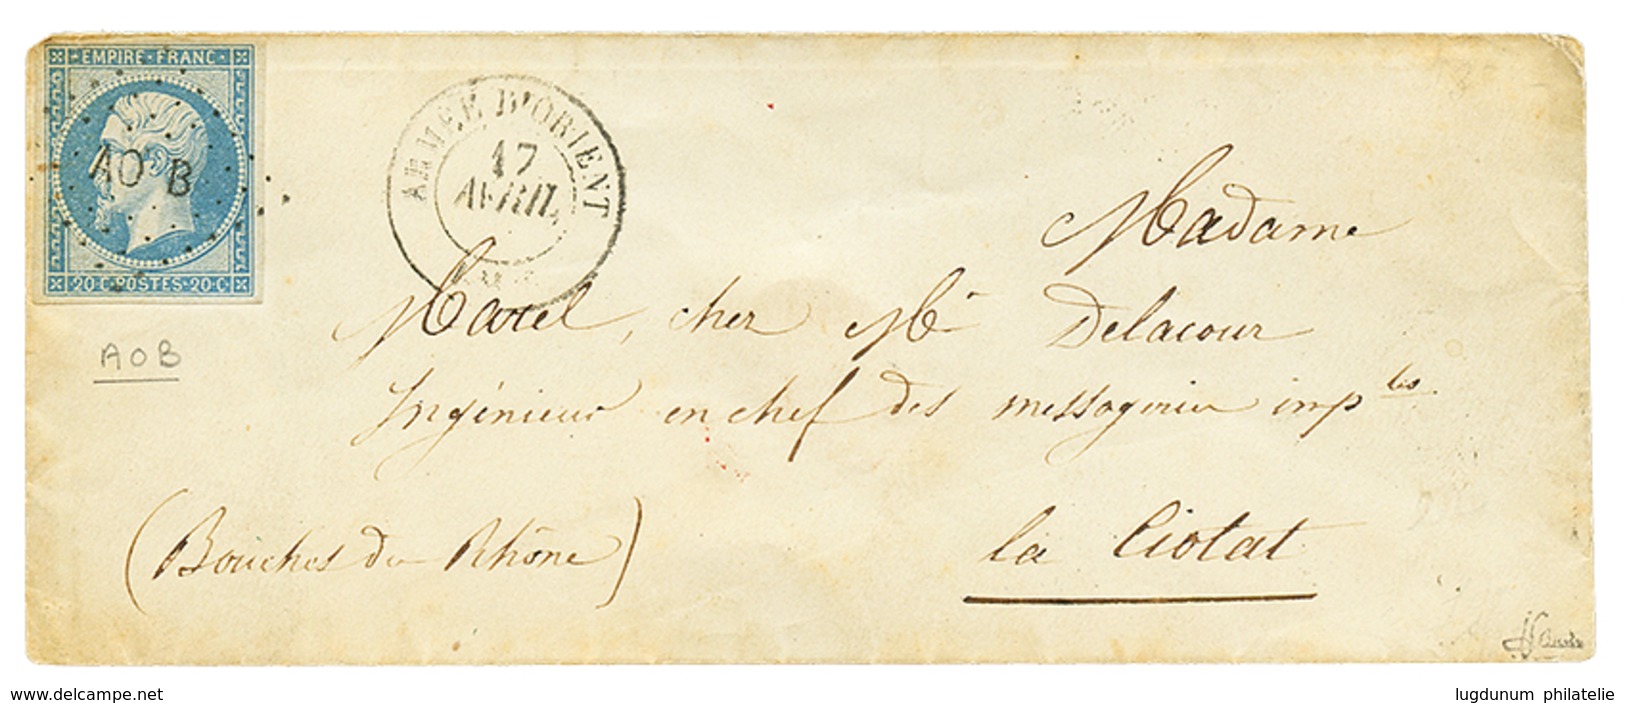 EMPIRE FRANC
AO B
20 C POSTES 20 C
ARMÉE D'ORIENT
17
AVRIL
AOB
Madame
Marel, cher Mr Delacour
Ingénieur en chef des messageries imples
la Ciotat
(Bouches du Rhône)
www.delcampe.net
lugdunum philatelie